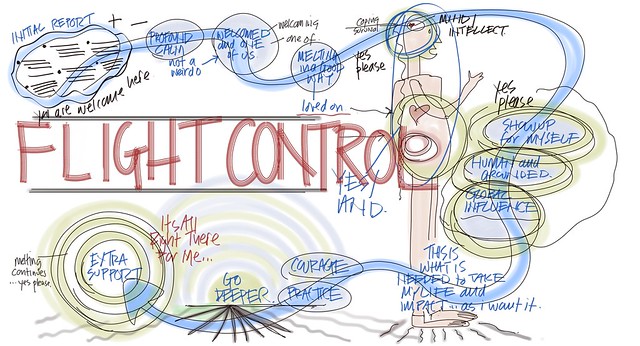 INITIAL REPORT
+ -
You are welcome here
PROFOUND
CALM
not a
weirdo
WELCOMED
and ONE
of US
welcoming
one of.
MELTING
in a good
WAY
loved on
yes
please
Coping
survival
MIND/
INTELLECT.
FLIGHT CONTROL
YES/
AND.
Yes
please
SHOW UP
for MYSELF
HUMAN and
grounded.
GLOBAL
INFLUENCE
THIS
WHAT IS
NEEDED to TAKE
MY LIFE and
IMPACT... as I want it.
COURAGE
PRACTICE
GO
DEEPER.
It's All
Right There
For Me...
EXTRA
SUPPORT
melting
continues
...yes please.